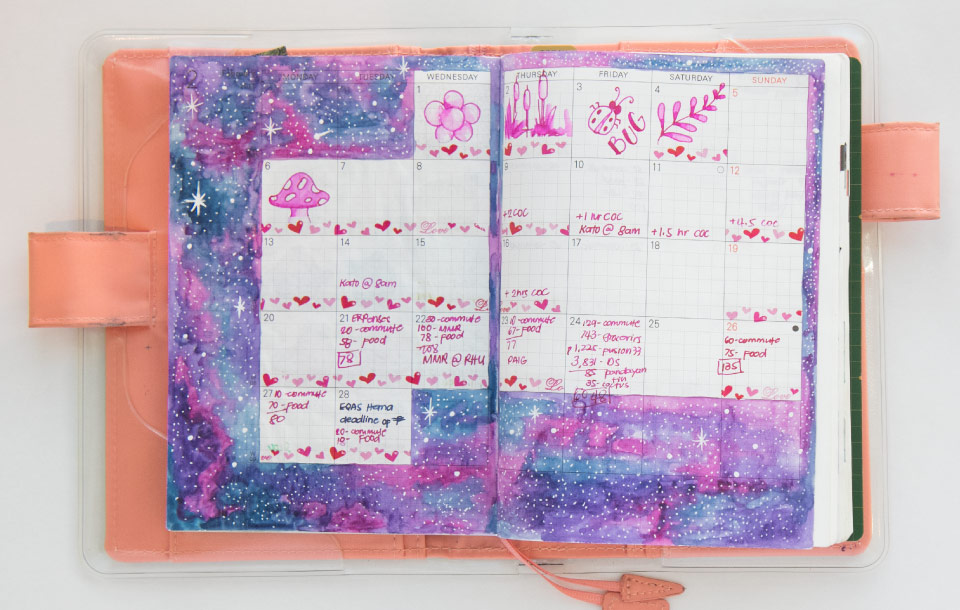 MONDAY TUESDAY WEDNESDAY THURSDAY FRIDAY SATURDAY SUNDAY
1 2 3 4 5
BUG
6 7 8 9 10 11 12
+2 COC
+1 hr COC
Kato @ 8am
+1.5 hr COC
+1.5 COC
Love
13 14 15 16 17 18 19
Kato @ 8am
+2hrs COC
20
21 Expenses
20-commute
58-food
78
22 30-commute
100-MMR
78-food
208
MMR @ RHU
23 10-commute
67-food
77
PAIG
24 124-commute
143-groceries
1,225-
3,831-DS
85
35-cactus
25
26
60-commute
75-food
135
Love
27 10-commute
70-food
80
28
EQAS Hema
deadline op
20-commute
10-Food